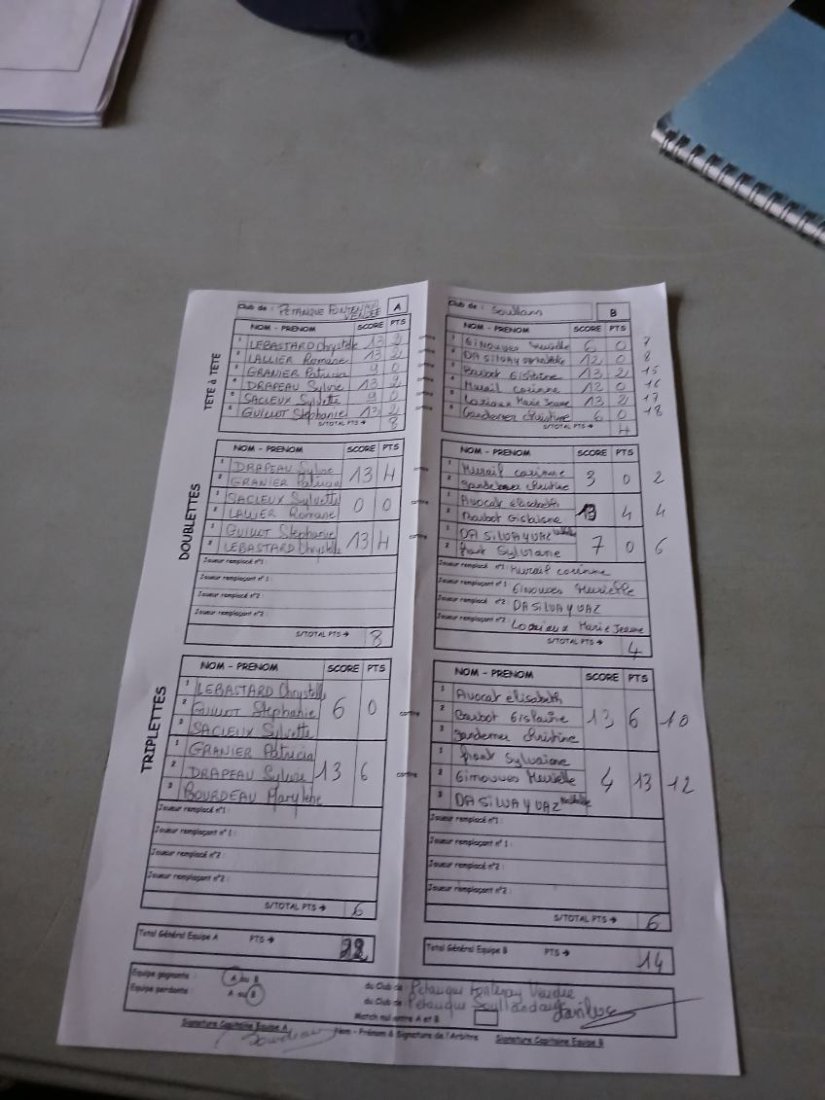 Club de : PETANQUE FONTENAY VENDEE A
TETE à TETE
NOM - PRENOM SCORE PTS
1 LEBASTARD Chrystelle 13 2
2 LALLIER Romane 13 2
3 GRANIER Patricia 9 0
4 DRAPEAU Sylvie 13 2
5 SACLEUX Sylvette 9 0
6 GUILLOT Stéphanie 13 2
S/TOTAL PTS → 8
DOUBLETTES
NOM - PRENOM SCORE PTS
1 DRAPEAU Sylvie 13 4
2 GRANIER Patricia
1 SACLEUX Sylvette 0 0
2 LALLIER Romane
1 GUILLOT Stephanie 13 4
2 LEBASTARD Chrystelle
Joueur remplacé n°1 :
Joueur remplaçant n° 1 :
Joueur remplacé n°2 :
Joueur remplaçant n°2 :
S/TOTAL PTS → 8
TRIPLETTES
NOM - PRENOM SCORE PTS
1 LEBASTARD Chrystelle
2 GUILLOT Stéphanie 6 0
3 SACLEUX Sylvette
1 GRANIER Patricia
2 DRAPEAU Sylvie 13 6
3 BOURDEAU Marylène
Joueur remplacé n°1 :
Joueur remplaçant n° 1 :
Joueur remplacé n°2 :
Joueur remplaçant n°2 :
S/TOTAL PTS → 6
Total Général Equipe A PTS → 22
contre
contre
contre
Club de : Soullans B
NOM - PRENOM SCORE PTS
1 Murielle 6 0 7
2 DA SILVA Y 12 0 8
3 Baubot Gislaine 13 2 15
4 Murail corinne 12 0 16
5 Marie Jeanne 13 2 17
6 Christine 6 0 18
S/TOTAL PTS → 4
NOM - PRENOM SCORE PTS
1 Murail corinne 3 0 2
2 christine
1 Avocat élisabeth 13 4 4
2 Baubot Gislaine
1 DA SILVA Y VAZ 7 0 6
2 Sylviane
Joueur remplacé n°1 : Murail corinne
Joueur remplaçant n° 1 : Murielle
Joueur remplacé n°2 DA SILVA Y VAZ
Joueur remplaçant n°2 : Marie Jeanne
S/TOTAL PTS → 4
NOM - PRENOM SCORE PTS
1 Avocat elisabeth
2 Baubot Gislaine 13 6 10
3 Christine
1
2 Murielle 4 13 12
3 DA SILVA Y VAZ
Joueur remplacé n°1 :
Joueur remplaçant n° 1 :
Joueur remplacé n°2 :
Joueur remplaçant n°2 :
S/TOTAL PTS → 6
Total Général Equipe B PTS → 14
Equipe gagnante : A ou B du Club de Petanque Fontenay Vendée
Equipe perdante : A ou B du Club de Petanque
Match nul entre A et B
Signature Capitaine Equipe A Nom - Prénom & Signature de l'Arbitre Signature Capitaine Equipe B